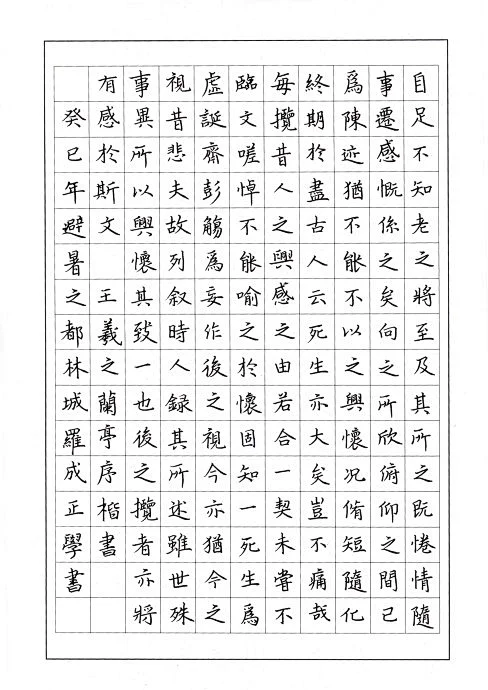 自足不知老之將至及其所之既倦情隨
事遷感慨係之矣向之所欣俯仰之間已
爲陳迹猶不能不以之興懷况脩短隨化
終期於盡古人云死生亦大矣豈不痛哉
每攬昔人之興感之由若合一契未嘗不
臨文嗟悼不能喻之於懷固知一死生爲
虛誕齋彭觴爲妄作後之視今亦猶今之
視昔悲夫故列叙時人録其所述雖世殊
事異所以興懷其致一也後之攬者亦將
有感於斯文 王羲之蘭亭序楷書
癸巳年避暑之都林城羅成正學書